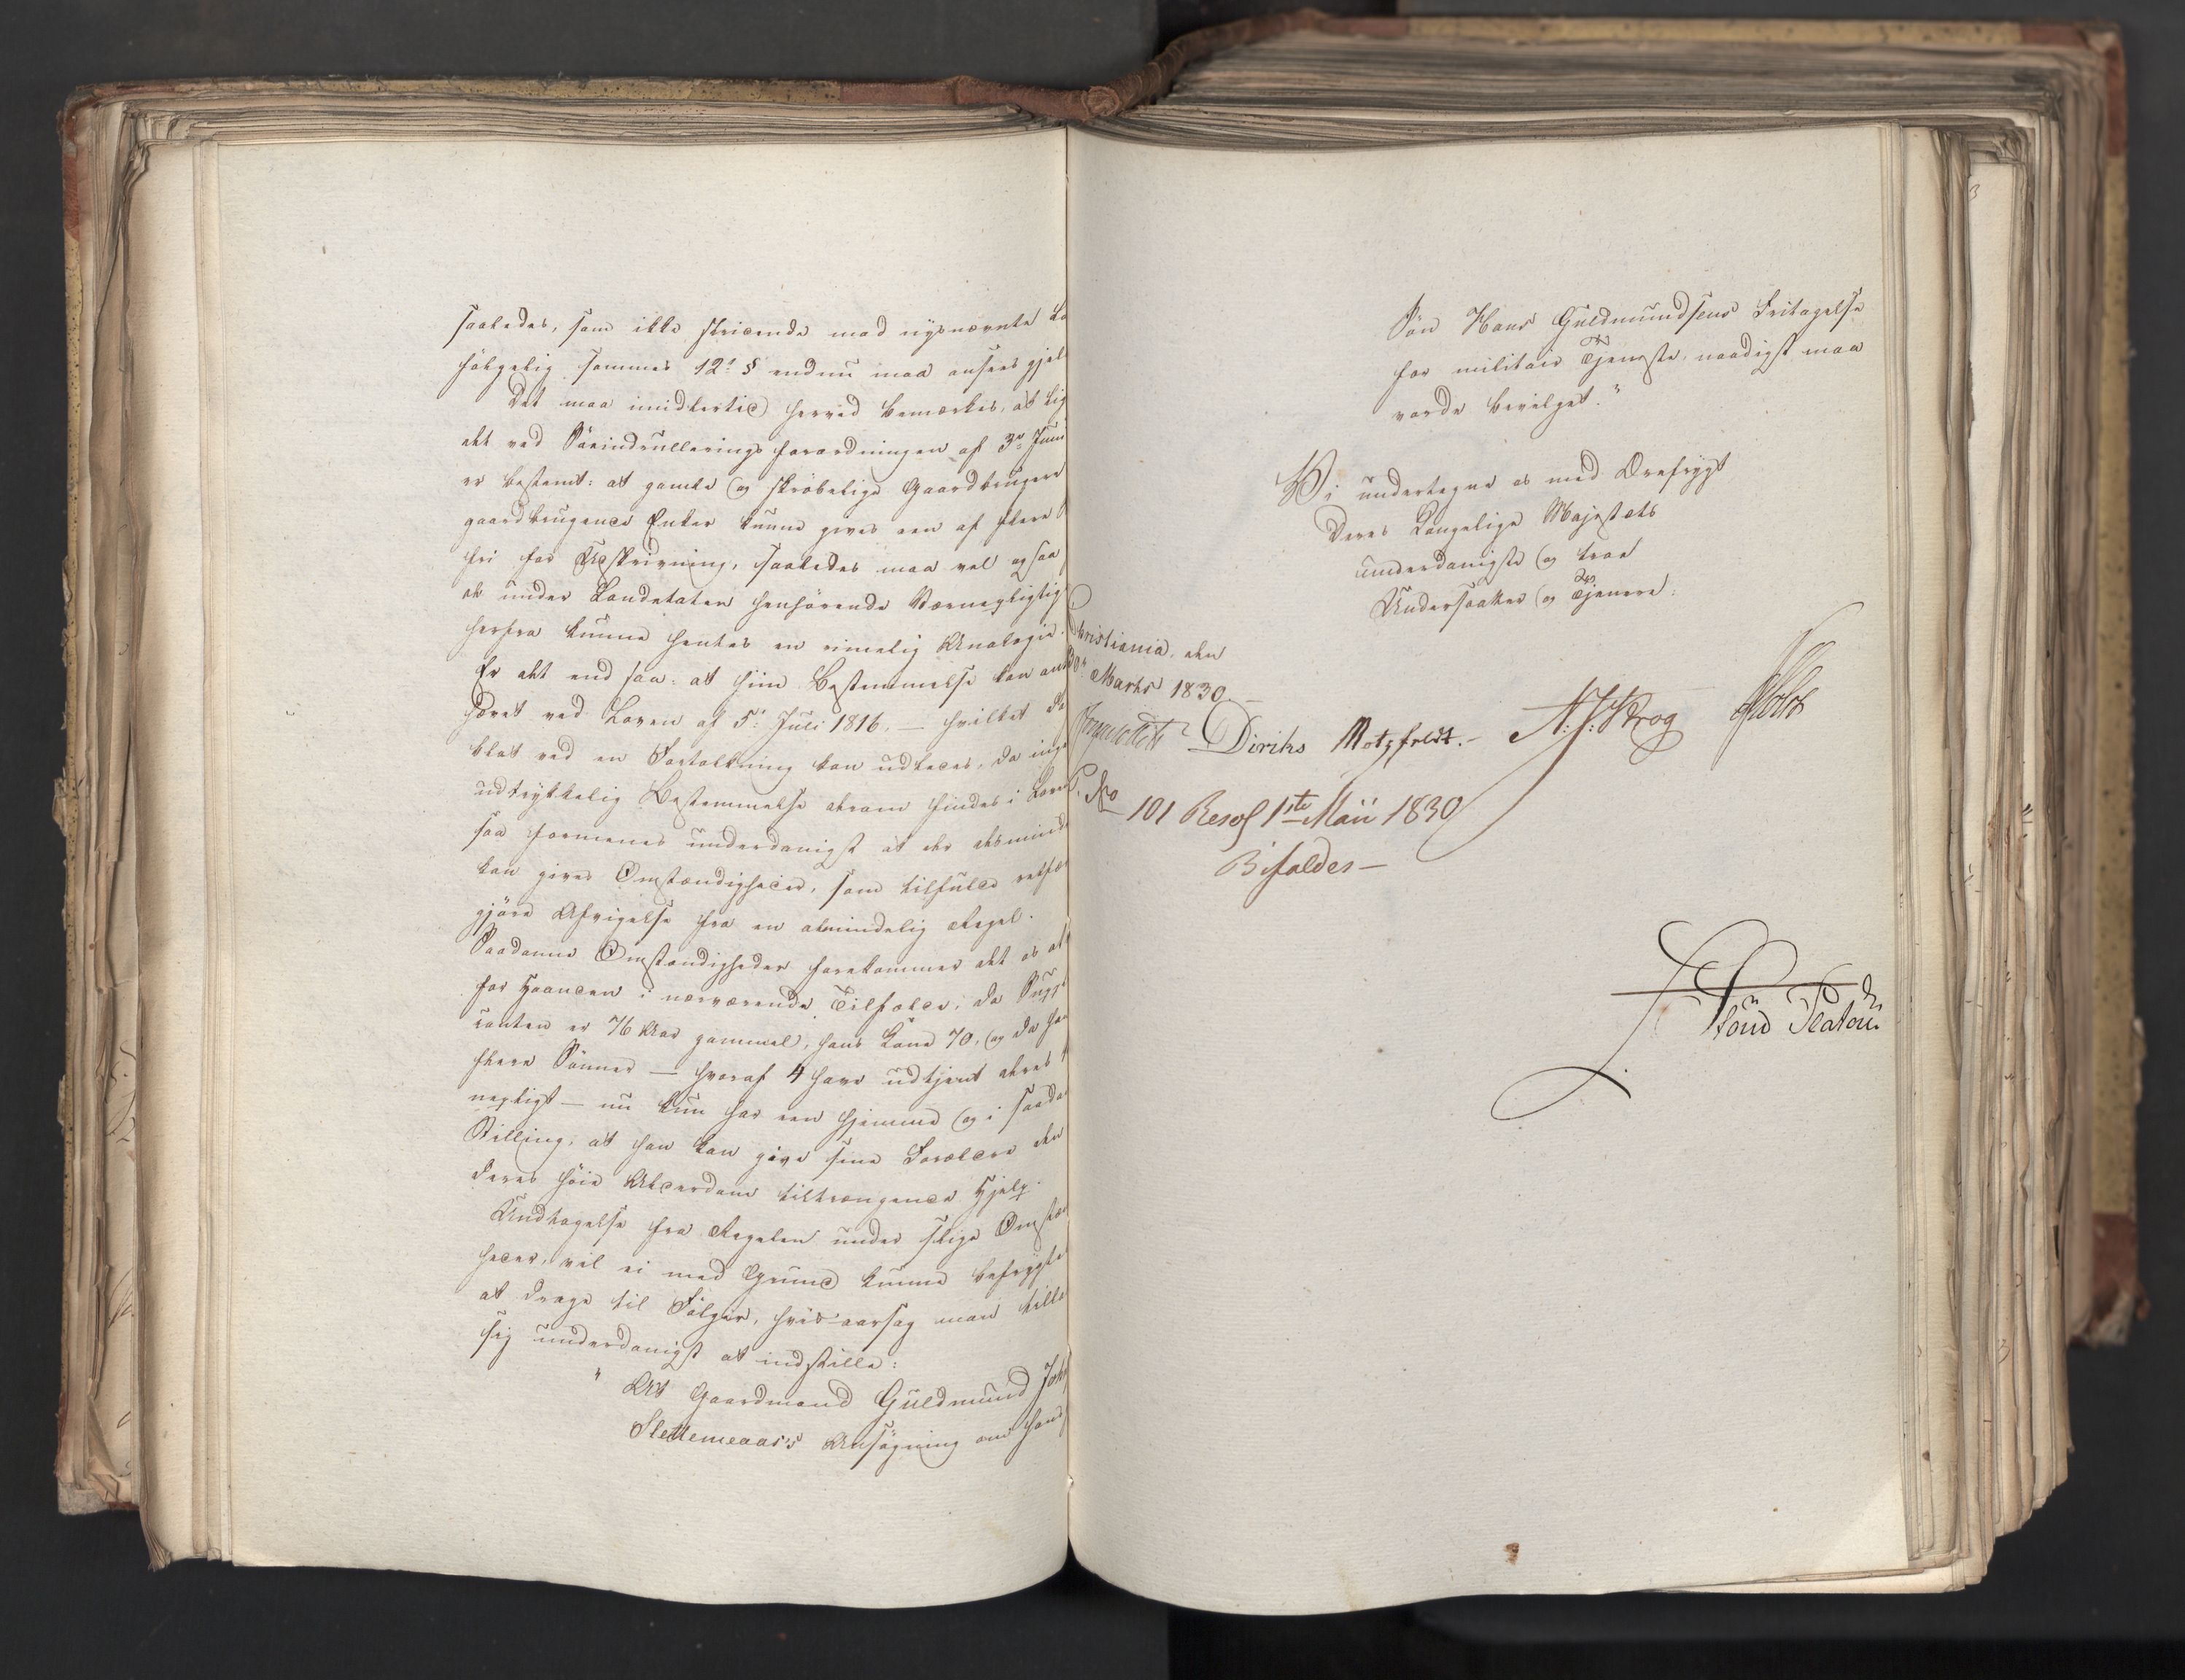 saaledes, som ikke stridende mod nysnævnte Lo
følgelig sammes 12te § endnu maa ansees gjel
Det maa imidlertid herved bemærkes, at lig
det ved Söeindrulleringsforordningen af 3de Juni
er bestemt: at gamle og skröbelige Gaardbrugere
gaardbrugende Enker kunne gives een af flere
fri for Udskrivning, saaledes maa vel ogsaa
de under Landetaten henhörende Værnepligtig
herfra kunne hentes en rimelig Analogie.
Er det end saa: at hiin Bestemmelse kan an
hævet ved Loven af 5te Juli 1816, — hvilket do
blot ved en Fortolkning kan udledes, da inge
udtrykkelig Bestemmelse derom findes i Loven
saa formenes underdanigst at der desmind
kan gives Omstændigheder, som tilfulde retfæ
gjöre Afvigelse fra en almindelig Regel.
Saadanne Omstændigheder forekommer det os at
for Haanden i nærværende Tilfælde, da Suppl
canten er 76 Aar gammel, hans Kone 70, og da han
flere Sönner — hvoraf 4 have udtjent deres
nepligt — nu kun har een hjemme og i saada
Stilling, at han kan give sine Forældre den
deres höie Alderdom tiltrængende Hjelp.
Undtagelse fra Regelen under slige Omstæn
heder, vil ei med Grund kunne befrygte
at drage til Fölger, hvisaarsag man tilla
sig underdanigst at indstille:
" At Gaardmand Guldmund Joh
Slettemeaas's Ansögning om hans
Sön Hans Guldmundsens Fritagelse
for militair Tjeneste, naadigst maa
vorde bevilget."
Vi undertegne os med Ærefrygt
Deres Kongelige Majestæts
underdanigste og troe
Undersaatter og Tjenere:
Christiania, den
30te Marts 1830.
Diriks Motzfeldt. A. J. Krog Holst
P. No 101 Resol 1ste Maii 1830
Bifaldes —